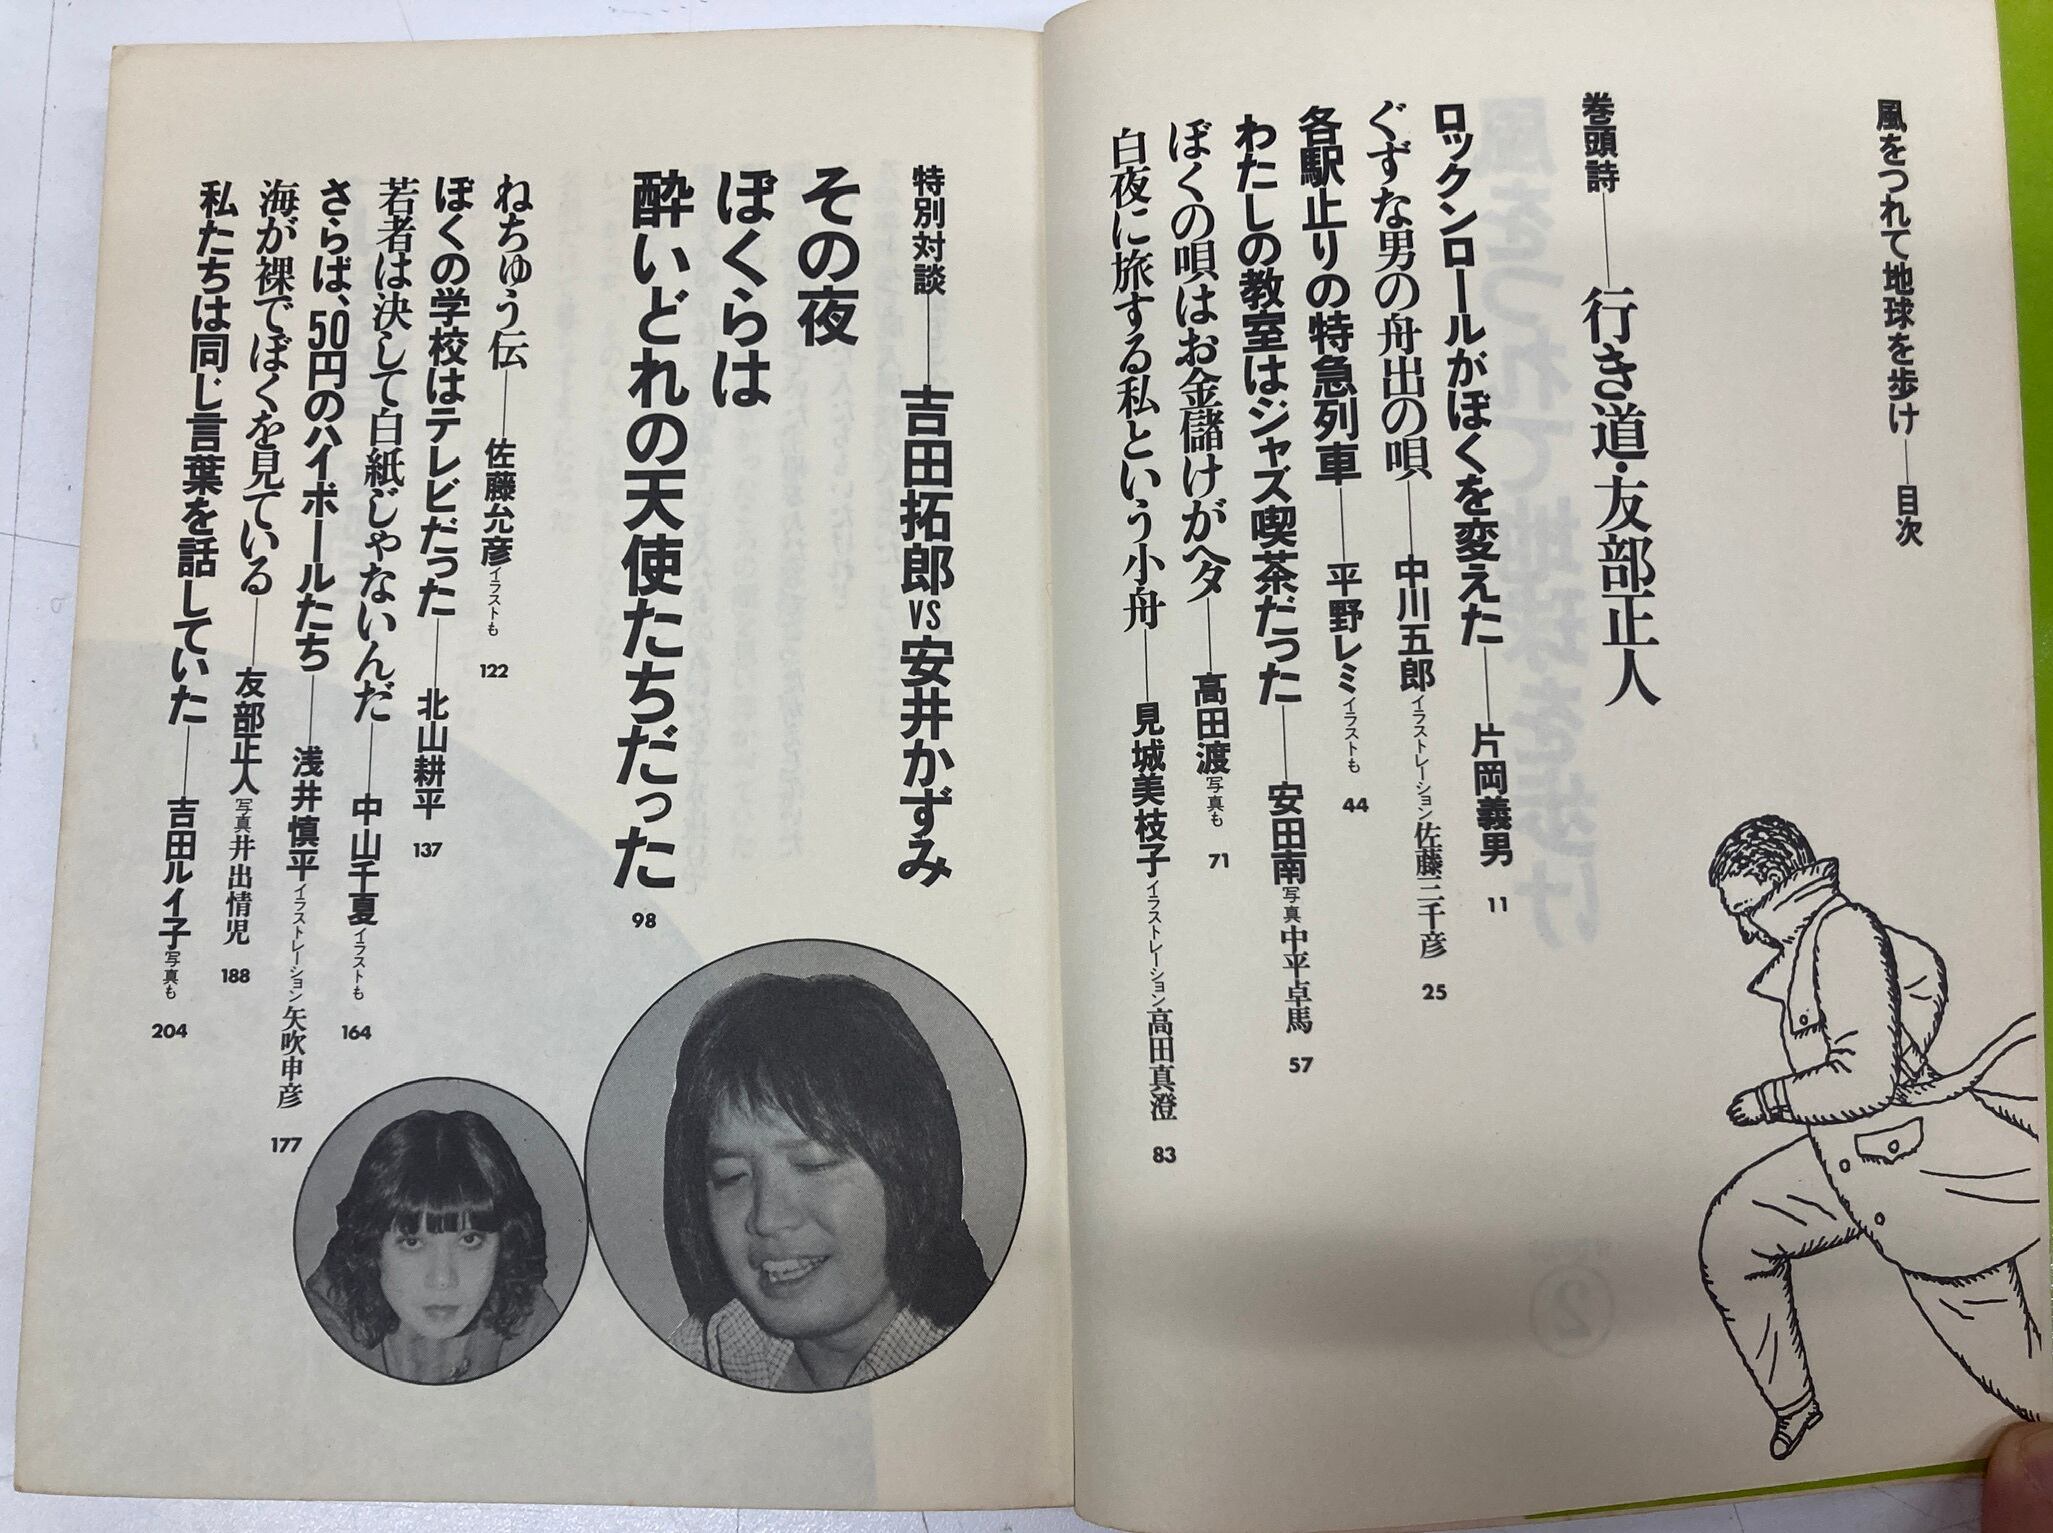 風をつれて地球を歩け——目次
巻頭詩——行き道・友部正人
ロックンロールがぼくを変えた——片岡義男 11
ぐずな男の舟出の唄——中川五郎 イラストレーション佐藤三千彦 25
各駅止りの特急列車——平野レミ イラストも 44
わたしの教室はジャズ喫茶だった——安田南 写真中平卓馬 57
ぼくの唄はお金儲けがヘタ——高田渡 写真も 71
白夜に旅する私という小舟——見城美枝子 イラストレーション高田真澄 83
特別対談——吉田拓郎VS安井かずみ
その夜
ぼくらは
酔いどれの天使たちだった 98
ねちゆう伝——佐藤允彦 イラストも 122
ぼくの学校はテレビだった——北山耕平 137
若者は決して白紙じゃないんだ——中山千夏 イラストも 164
さらば、50円のハイボールたち——浅井慎平 イラストレーション矢吹申彦 177
海が裸でぼくを見ている——友部正人 写真井出情児 188
私たちは同じ言葉を話していた——吉田ルイ子 写真も 204